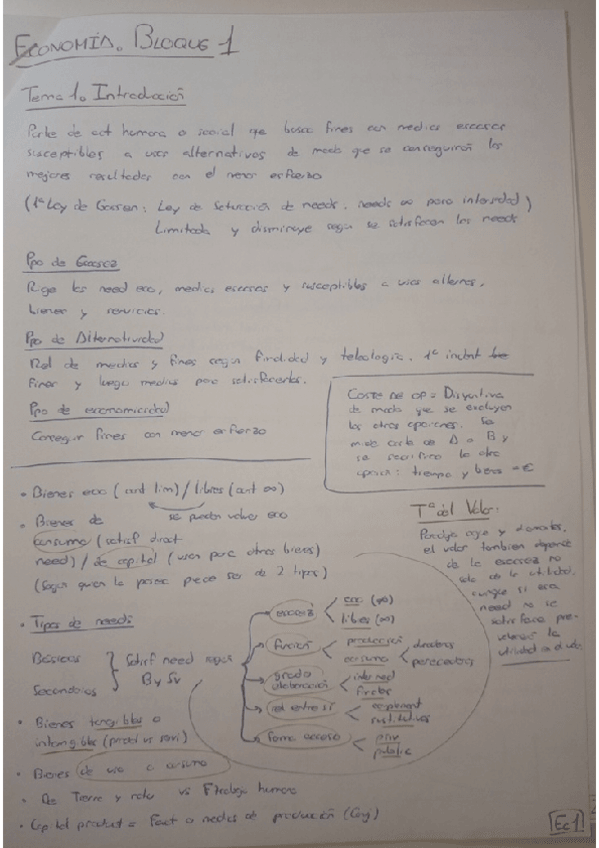 ECONOMÍA. BLOQUE 1
Tema 1. Introducción
Parte de act humana o social que busca fines con medios escasos
susceptibles a usos alternativos de modo que se conseguirán los
mejores resultados con el menor esfuerzo
(1ª Ley de Gossen: Ley de Saturación de needs. needs ∞ pero intensidad)
Limitada y disminuye según se satisfacen las needs
Ppo de Escasez
Rige las need eco, medios escasos y susceptibles a usos altern.
bienes y servicios.
Ppo de Alternatividad
Rel de medios y fines según finalidad y teleología. 1º
fines y luego medios para satisfacerlos.
Ppo de economicidad
Conseguir fines con menor esfuerzo
COSTE DE OP = Disyuntiva
de modo que se excluyen
las otras opciones. Se
mide coste de A o B y
se sacrifica la otra
opción: tiempo y = €
• Bienes eco (cant lim) / libres (cant ∞)
• Bienes de se pueden volver eco
consumo (satisf direct
need) / de capital (usan para otros bienes)
(Según quien la posee puede ser de 2 tipos)
Tª del Valor:
Paradoja agua y diamantes,
el valor también depende
de la escasez no
solo de la utilidad,
aunque si esa
need no se
satisface
la
utilidad
• Tipos de needs
Básicas
Secundarias
Satisf need según
B y Sv
escasez
eco (∞)
libres (∞)
función
producción
consumo
duraderos
perecederos
grado
elaboración
intermed
finales
rel entre sí
complement
sustitutivos
forma acceso
priv
públic
• Bienes tangibles o
intangibles (product vs servi)
• Bienes de uso o consumo
• De Tierra y natu vs humano
• Capital product = Fact o medios de producción (Conj)
Ec1